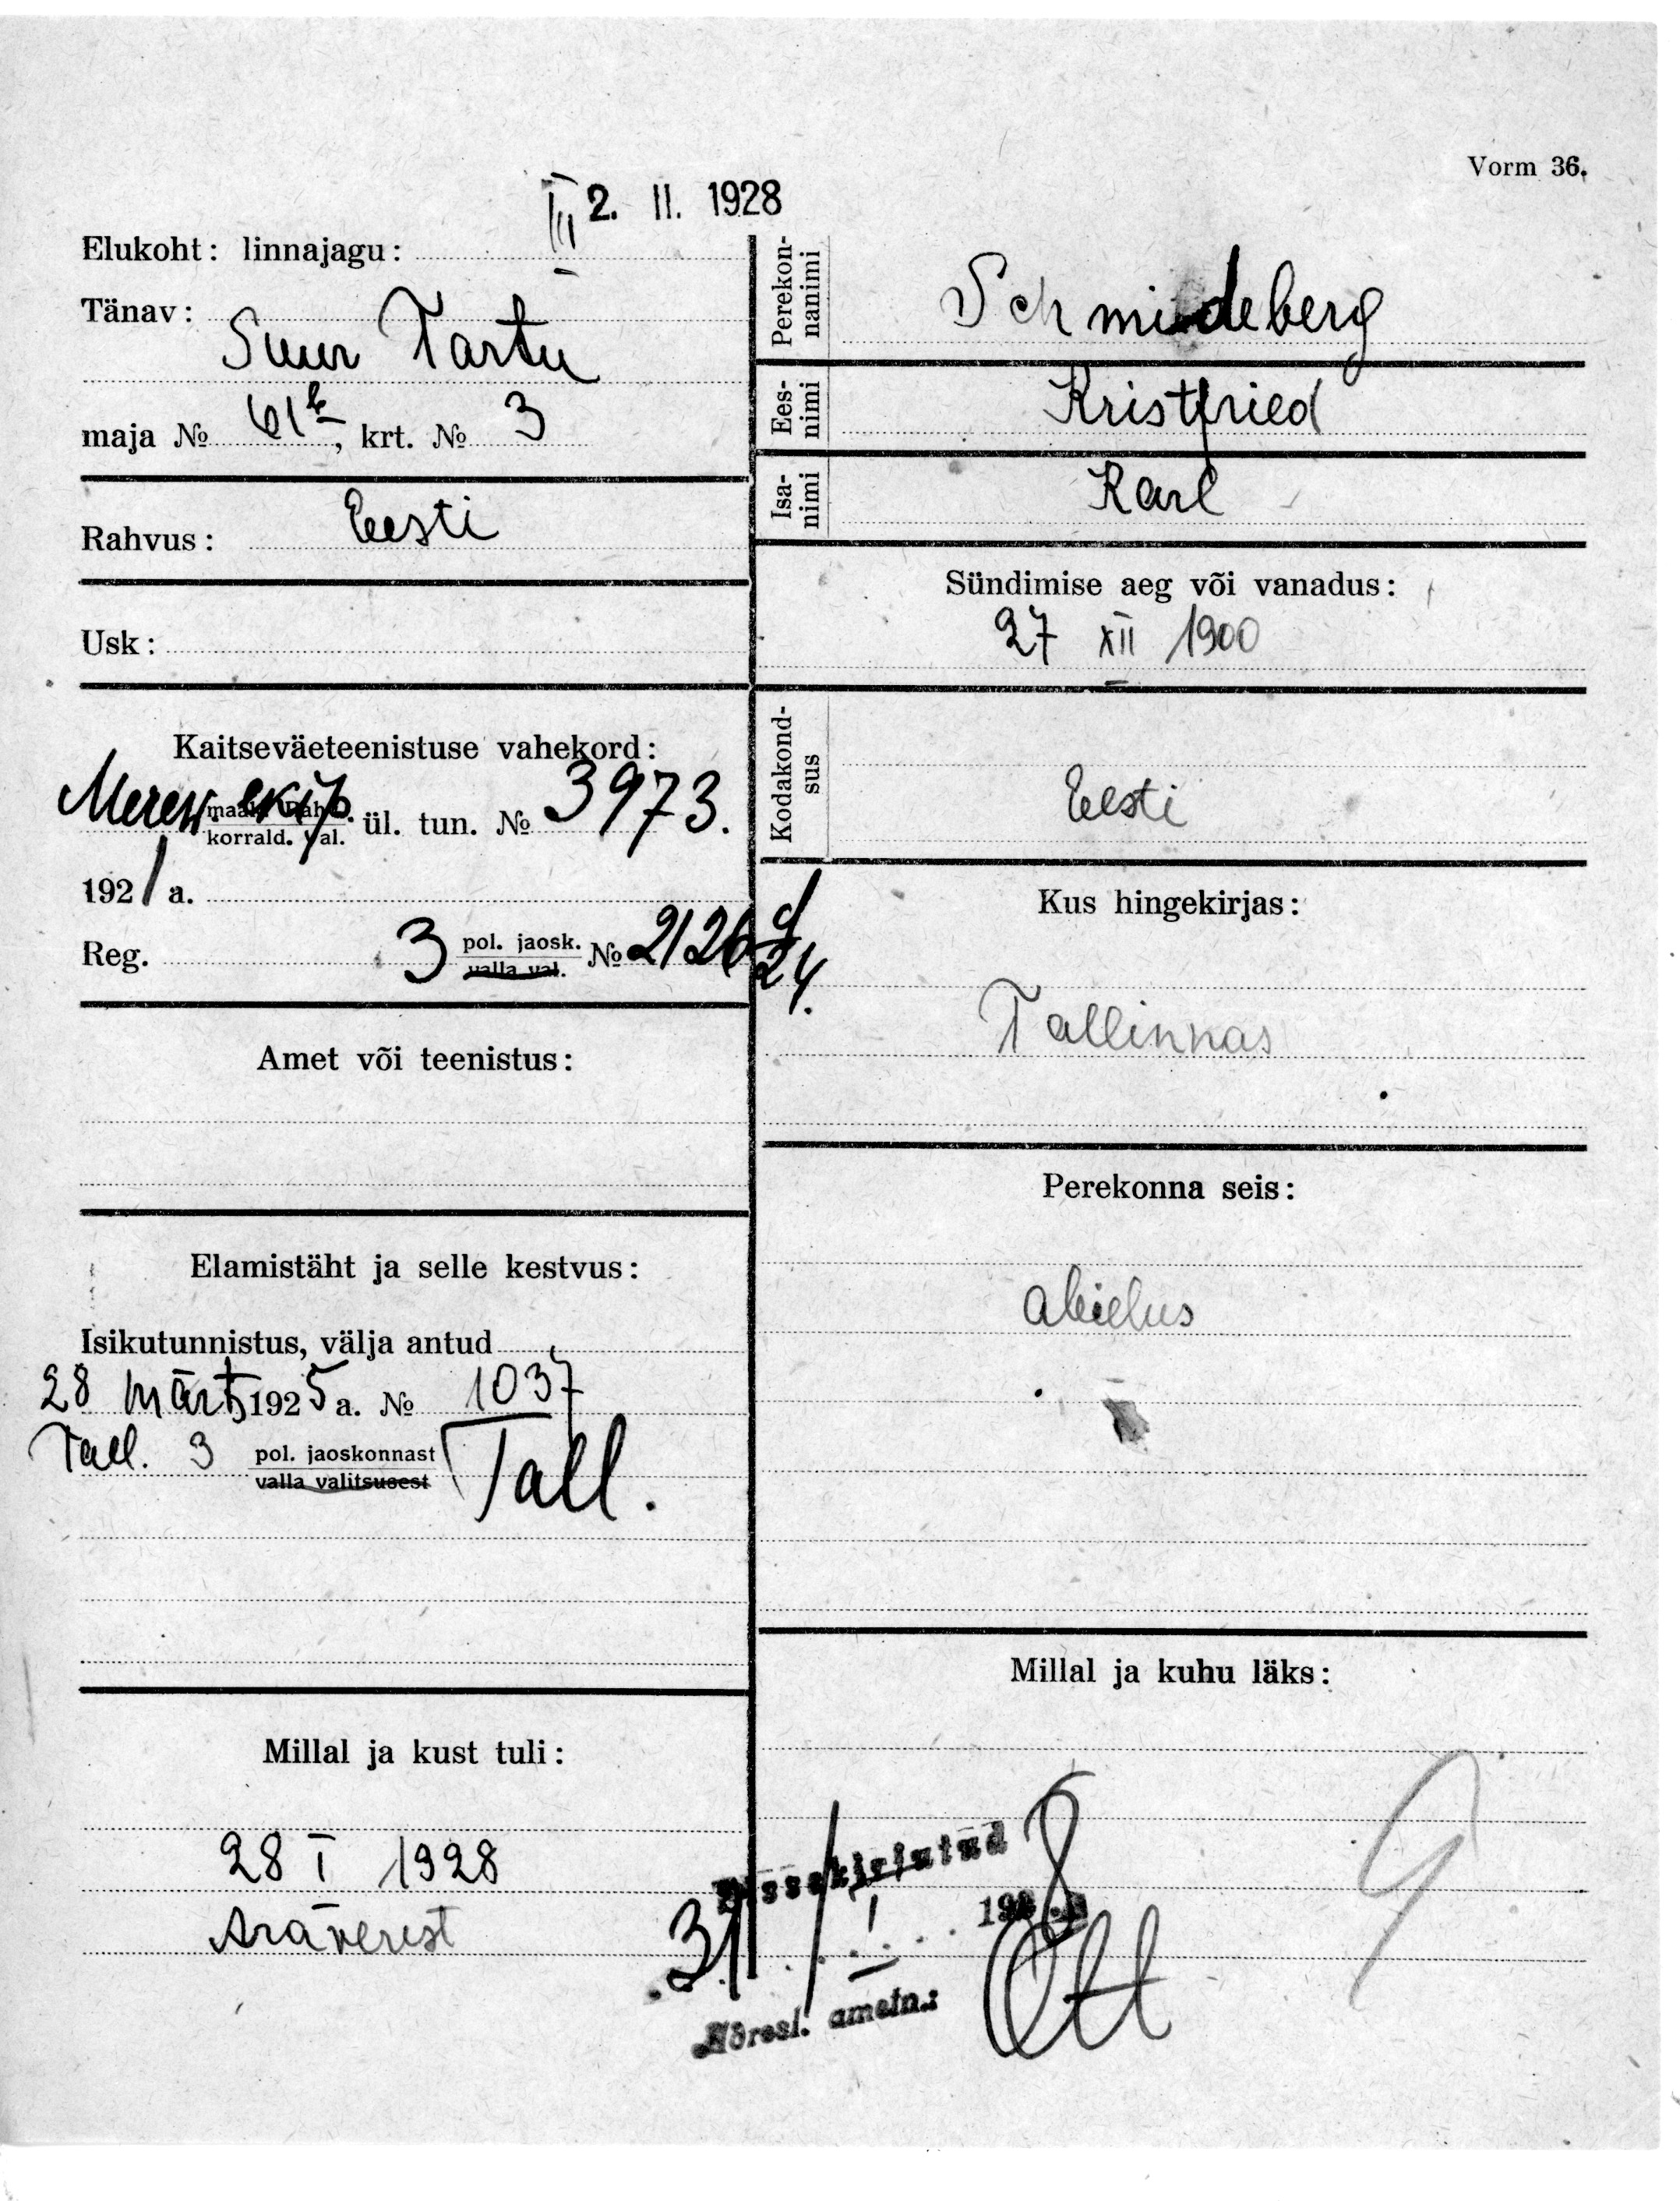 Vorm 36.
2. II. 1928
Elukoht: linnajagu: III
Tänav:
Suur Tartu
maja № 61b, krt. № 3
Rahvus: Eesti
Usk:
Kaitseväeteenistuse vahekord:
Merew. ekip. ül. tun. № 3973.
korrald. val.
1921 a.
Reg. 3 pol. jaosk. № 2126
valla val.
24.
Amet või teenistus:
Elamistäht ja selle kestvus:
Isikutunnistus, välja antud
28 märts 1925 a. № 1037
Tall. 3 pol. jaoskonnast Tall.
valla valitsusest
Millal ja kust tuli:
28 I 1928
Aräverest
Perekon-
nanimi
Schmiedeberg
Ees-
nimi
Kristfried
Isa-
nimi
Karl
Sündimise aeg või vanadus:
27 XII 1900
Kodakond-
sus
Eesti
Kus hingekirjas:
Tallinnas
Perekonna seis:
abielus
Millal ja kuhu läks:
Sissekirjutud
31 / I 1928 a
Aöresl. ametn.:
Ott
9